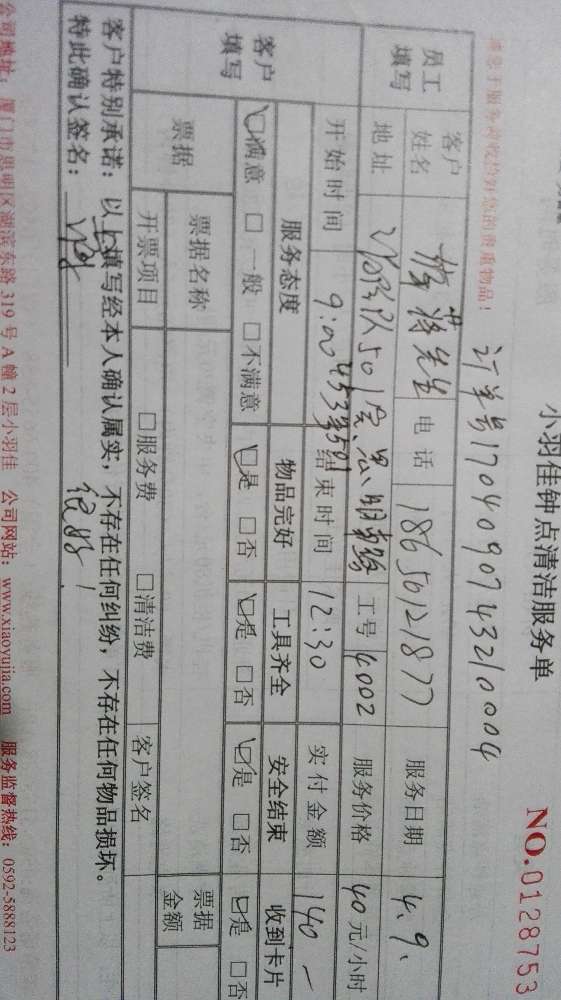 小羽佳钟点清洁服务单
NO.0128753
订单号1704090743210004
您的贵重物品!
员工填写 客户姓名 蒋先生 电话 18650121877 服务日期 4.9.
地址 501 工号 4002 服务价格 40元/小时
客户填写 开始时间 9:00 结束时间 12:30 实付金额 140
服务态度 物品完好 工具齐全 安全结束 收到卡片
☑满意 □一般 □不满意 ☑是 □否 ☑是 □否 ☑是 □否 ☑是 □否
票据 票据名称 票据金额
开票项目 □服务费 □清洁费 客户签名
客户特别承诺：以上填写经本人确认属实，不存在任何纠纷，不存在任何物品损坏。
特此确认签名： 很好！
公司地址：厦门市思明区湖滨东路319号A幢2层小羽佳 公司网站：www.xiaoyujia.com 服务监督热线：0592-5888123